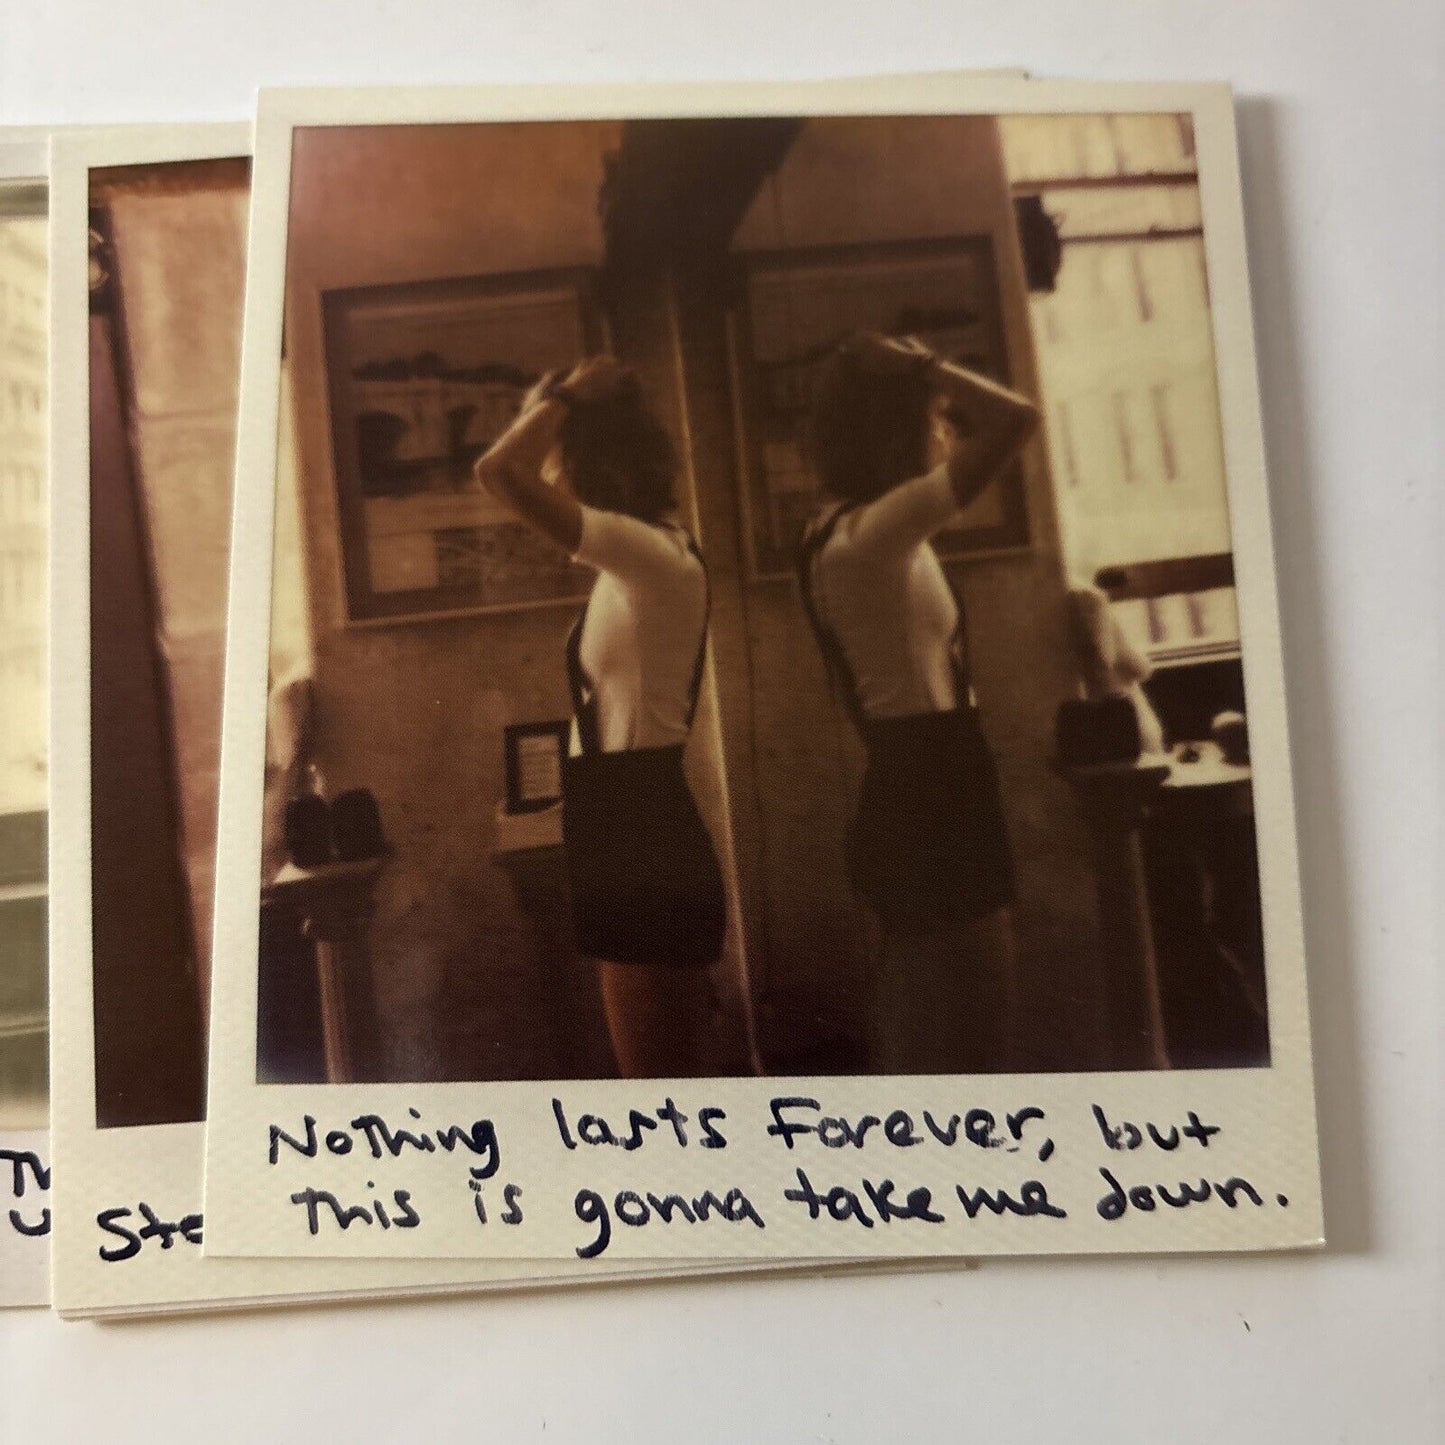 Nothing lasts Forever, but
This is gonna take me down.